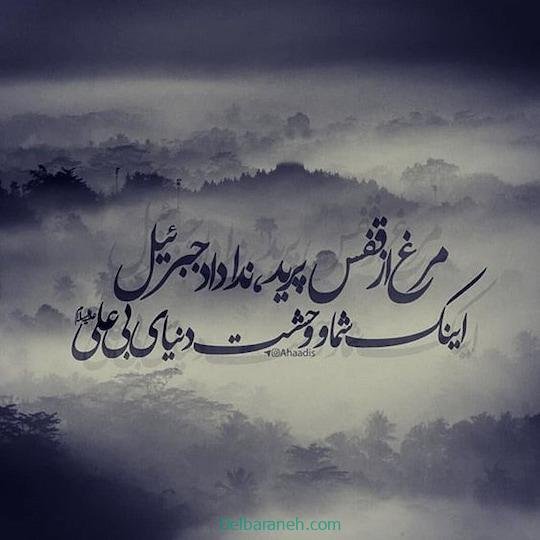 مرغ از قفس پرید، ندا داد جبرئیل
اینک شما و وحشت دنیای بی علی علیه‌السلام
@Ahaadis
Delbaraneh.com